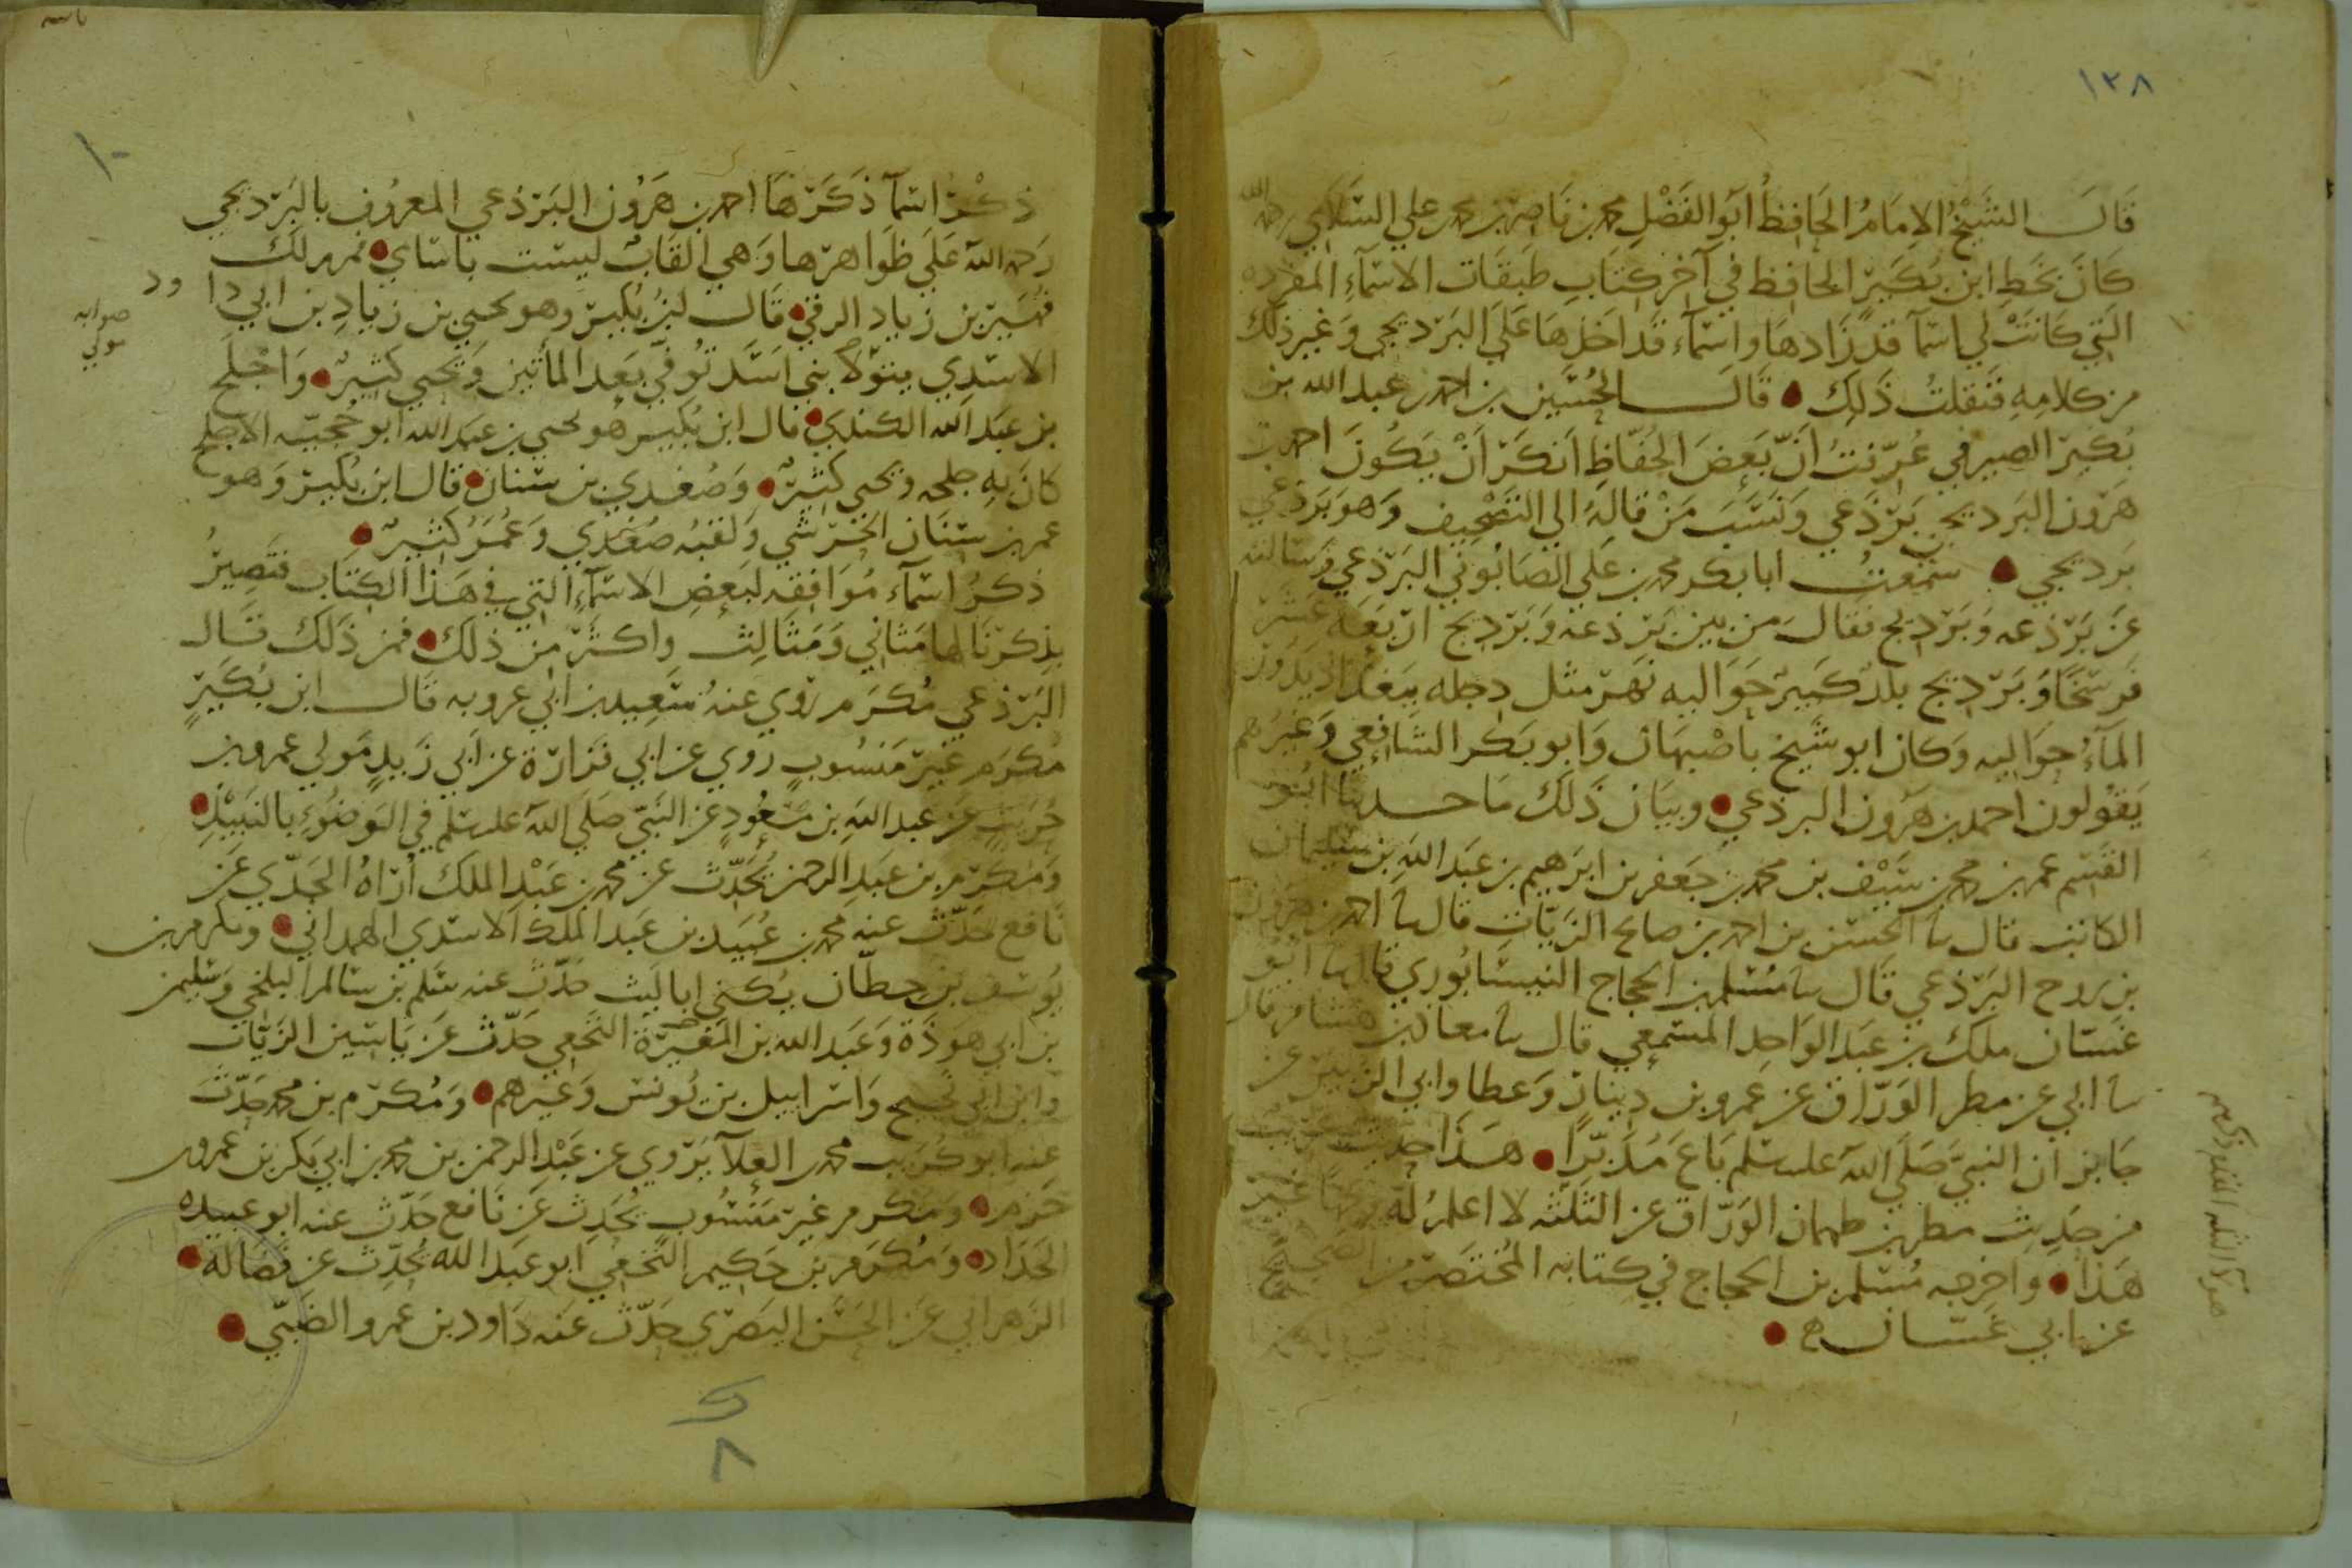 ١٣٨
قَالَ الشَّيْخُ الإمَامُ الحَافِظُ أبو الفَضْلِ محمد بن نَاصِر بن محمد بن علي السَّلَامي رحمه الله
كَانَ بخَطِ ابن بُكَيْرٍ الحافظ في آخر كِتَابِ طَبَقَات الاسْمَآءِ المفرده
التي كَانَتْ لي اسمآ قد زَادها واسمآء قد ادخلهَا عَلَي البَرْديجي وَغير ذلك
من كلامِهِ فنَقلتُ ذَلِكَ • قَالَ الحُسَين بن احمد بن عبد الله بن
بُكير الصيرفي عُرّفتُ أنّ بَعضَ الحُفّاظِ أنكَرَ أنْ يَكُونَ احمد بن
هَرون البَرديجي بَرْذَعي وَنَسَبَ مَنْ قالهُ الي التَصْحِيف وَهو بَرذعي
بَرديجي • سَمعتُ ابا بكر محمد بن عَلي الصَابُوني البَرْذعي وَسَالته
عَن بَرْذعه وبَرْديج فقالَ من بين بَرْذعه وَبَرْديج اربَعَه عَشَر
فَرسَخًا وَبَرْديج بلد كَبير حَوَاليه نَهَر مثل دجله ببَغداد يَدُور
المآءُ حوَاليه وَكان ابو شيخ باصْبهَان وَابو بَكر الشافِعي وَغَيرهم
يَقُولون احمد بن هَرُون البرذعي • وبيَان ذَلكَ مَا حدثنا ابُو
القسِم عمر بن محمد بن سَيْف بن محمد بن جَعفر بن ابرَهيم بن عَبد الله بن سليمان
الكاتب قال نا الحسَن بن احمد بن صالح الزيّات قال نا احمد بن هرون
بن روح البَرْذعي قَال نا مُسْلم بن الحجاج النيسَابُوري قال نا ابُو
غسّان ملك بن عبد الوَاحِد المسمَعي قال نا معاذ بن هشام قال
نا ابي عن مطر الوَرّاق عن عمرو بن دينار وَعطا وابي الزبير عن
جَابر ان النبيَّ صَلي الله عليه سلم بَاعَ مُدَبّرًا • هَذَا حديث غريب
من حَديث مطر بن طهمان الوَرّاق عن الثلثه لا اعلمُ لَهُ غير
هَذا • واخرجه مُسْلم بن الحجاج في كتابه المُختَصر من الصَحيح
عن ابي غسّان •
١٠
ذِكْرُ اسْمآ ذَكَرَهَا احمد بن هَرُون البَرْذعي المعرُوف بالبَرْديجي
رَحمه الله عَلَي ظَوَاهرهَا وَهي القَابٌ ليسَت باسَامي • فمن ذلك
بن زياد الرقي • قَال ابن بُكير وهو يحيي بن زيادِ بن ابي داود
الاسَدي بني اسَد تُوفي بَعد المأتين وَيحيي كثير • وَاجلَح
صوابه
مولي
بن عَبد الله الكندي • قال ابن بُكير هُو يحيي بن عَبد الله ابو حُجيّه الاجلح
كانَ بهِ جلحه ويحيي كثير • وَصُغدي بن سنان • قال ابن بُكير وَهو
عمر بن سنَان الخَرَشي وَلقبُه صُغْدي وَعُمَر كثير •
ذكرُ اسمآء مُوَافِقه لبَعض الاسمآءِ التي في هَذا الكِتَاب فتَصِيرُ
بذكرنَا لها مَثاني وَمَثَالِث واكثر مِن ذلكَ • فمن ذَلكَ قَال
البَرْذعي مُكرَم رَوي عنهُ سَعيد بن ابي عروبه قَال ابن بُكَيرٍ
مُكرَم غير مَنسُوبٍ روي عن ابي فزارة عن ابي زَيدٍ مَولي عمرو بن
حُرَيث عن عبد الله بن مَسْعُودٍ عن النَبيّ صَلَي الله عليه سلم في الوَضُوءِ بالنَبيْذ •
وَمُكرَم بن عَبدِ الرحمن يُحَدّث عن محمد بن عَبْد الملك أرَاهُ الجَدّي عَن
نَافع حَدّث عنه محمد بن عُبيَد بن عَبد المَلك الاسَدي الهمداني • ومكرم بن
يُوسف بن حطّان يُكني ابا ليَث حَدّث عنه سَلم بن سَالم البلخي وَسليمن
بن ابي هَوذَة وَعَبد الله بن المغيَرة النَخَعي حَدّث عن يَاسين الزَيّات
وَابن ابي نَجيح وَاسرَاييل بن يُونس وَغيرهم • وَمُكرَم بن محمد حَدّثَ
عنه ابو كُرَيب محمد بن العلآ يَرْوي عن عَبْد الرحمن بن محمد بن ابي بَكر بن عمرو بن
حَزم • وَمكرم غير مَنسُوبٍ يُحَدث عَن نَافع حَدّث عنه ابو عبيده
الحَدَاد • وَمُكرَم بن حَكيم النَخَعي ابو عَبد الله يُحدّث عن فَضَاله •
الزَهراني عَن الحَسَن البَصري حَدّث عَنه دَاود بن عمرو الضَبّي •
٨